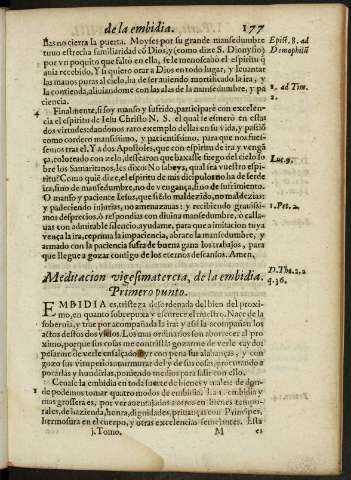 de la embidia. 177
llas no cierra la puerta. Moyses por su grande mansedumbre
tuuo estrecha familiaridad cō Dios, y (como dize S. Dionysio)
por vn poquito que faltò en ella, se le menoscabò el espiritu q̄
auia recebido. Y si quiero orar a Dios en todo lugar, y leuantar
las manos puras al cielo, ha de ser auiendo mortificado la ira, y
la contienda, aliuiandome con las alas de la mansedumbre, y pa
ciencia.
Epist. 8. ad
Demophilū
1. ad Tim.
2.
Finalmente, si soy manso y sufrido, participarè con excelen-
cia el espiritu de Iesu Christo N. S. el qual se esmerò en estas
dos virtudes: dandonos raro exemplo dellas en su vida, y passiō
como cordero mansissimo, y pacientissimo, para que nosotros fuesse-
mos tras el. Y a dos Apostoles, que con espiritu de ira y vengā
ça, coloreado con zelo, dessearon que baxasse fuego del cielo so
bre los Samaritanos, les dixo: No sabeys, qual sea vuestro espiri-
tu? Como quiē dize, el espiritu de mis dicipulos no ha de ser de
ira, sino de mansedumbre, no de vengança, sino de sufrimiento.
O manso y paciente Iesus, que siēdo maldezido, no maldezias:
y padeciendo injurias, no amenazauas: y recibiendo grauissi-
mos desprecios, ò respondias con diuina mansedumbre, o calla-
uas con admirable silencio, ayudame, para que a imitacion tuya
vença la ira, reprima la impaciencia, abrace la mansedumbre, y
armado con la paciencia sufra de buena gana los trabajos, para
que llegue a gozar contigo de los eternos descansos. Amen.
Luc. 9.
1. Pet. 2.
Meditacion vigesimatercia, de la embidia.
Primero punto.
D. Tho. 2. 2
q. 36.
EMBIDIA es, tristeza desordenada del bien del proxi-
mo, en quanto sobrepuxa y escurece el nuestro. Nace de la
soberuia, y trae por acompañada la ira: y assi la acompañan los
actos destos dos vicios. Los mas ordinarios son aborrecer al pro
ximo, porque sus cosas me contristā: gozarme de verle caydo:
pesarme de verle ensalçado: oyr con pena sus alabanças, y con
gozo sus vituperios: murmurar del y de sus cosas, procurando a
pocarlas y hundirlas, poniendo medios para salir con ello.
Ceuase la embidia en toda suerte de bienes y males: de don-
de podemos tomar quatro modos de embidia. La 1. embidia y
mas grossera es, por ver auentajados a otros en bienes tempo-
rales, de hazienda, honra, dignidades, priuanças con Principes,
hermosura en el cuerpo, y otras excelencias semejantes. Esta
j. Tomo. M es